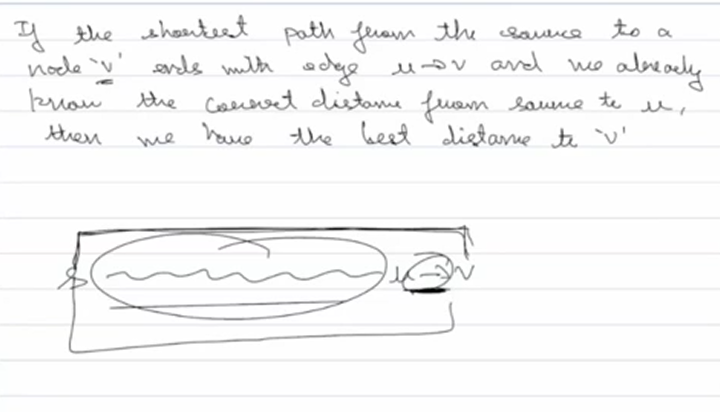 If the shortest path from the source to a
node 'v' ends with edge u→v and we already
know the correct distance from source to u,
then we have the best distance to 'v'
S u→v